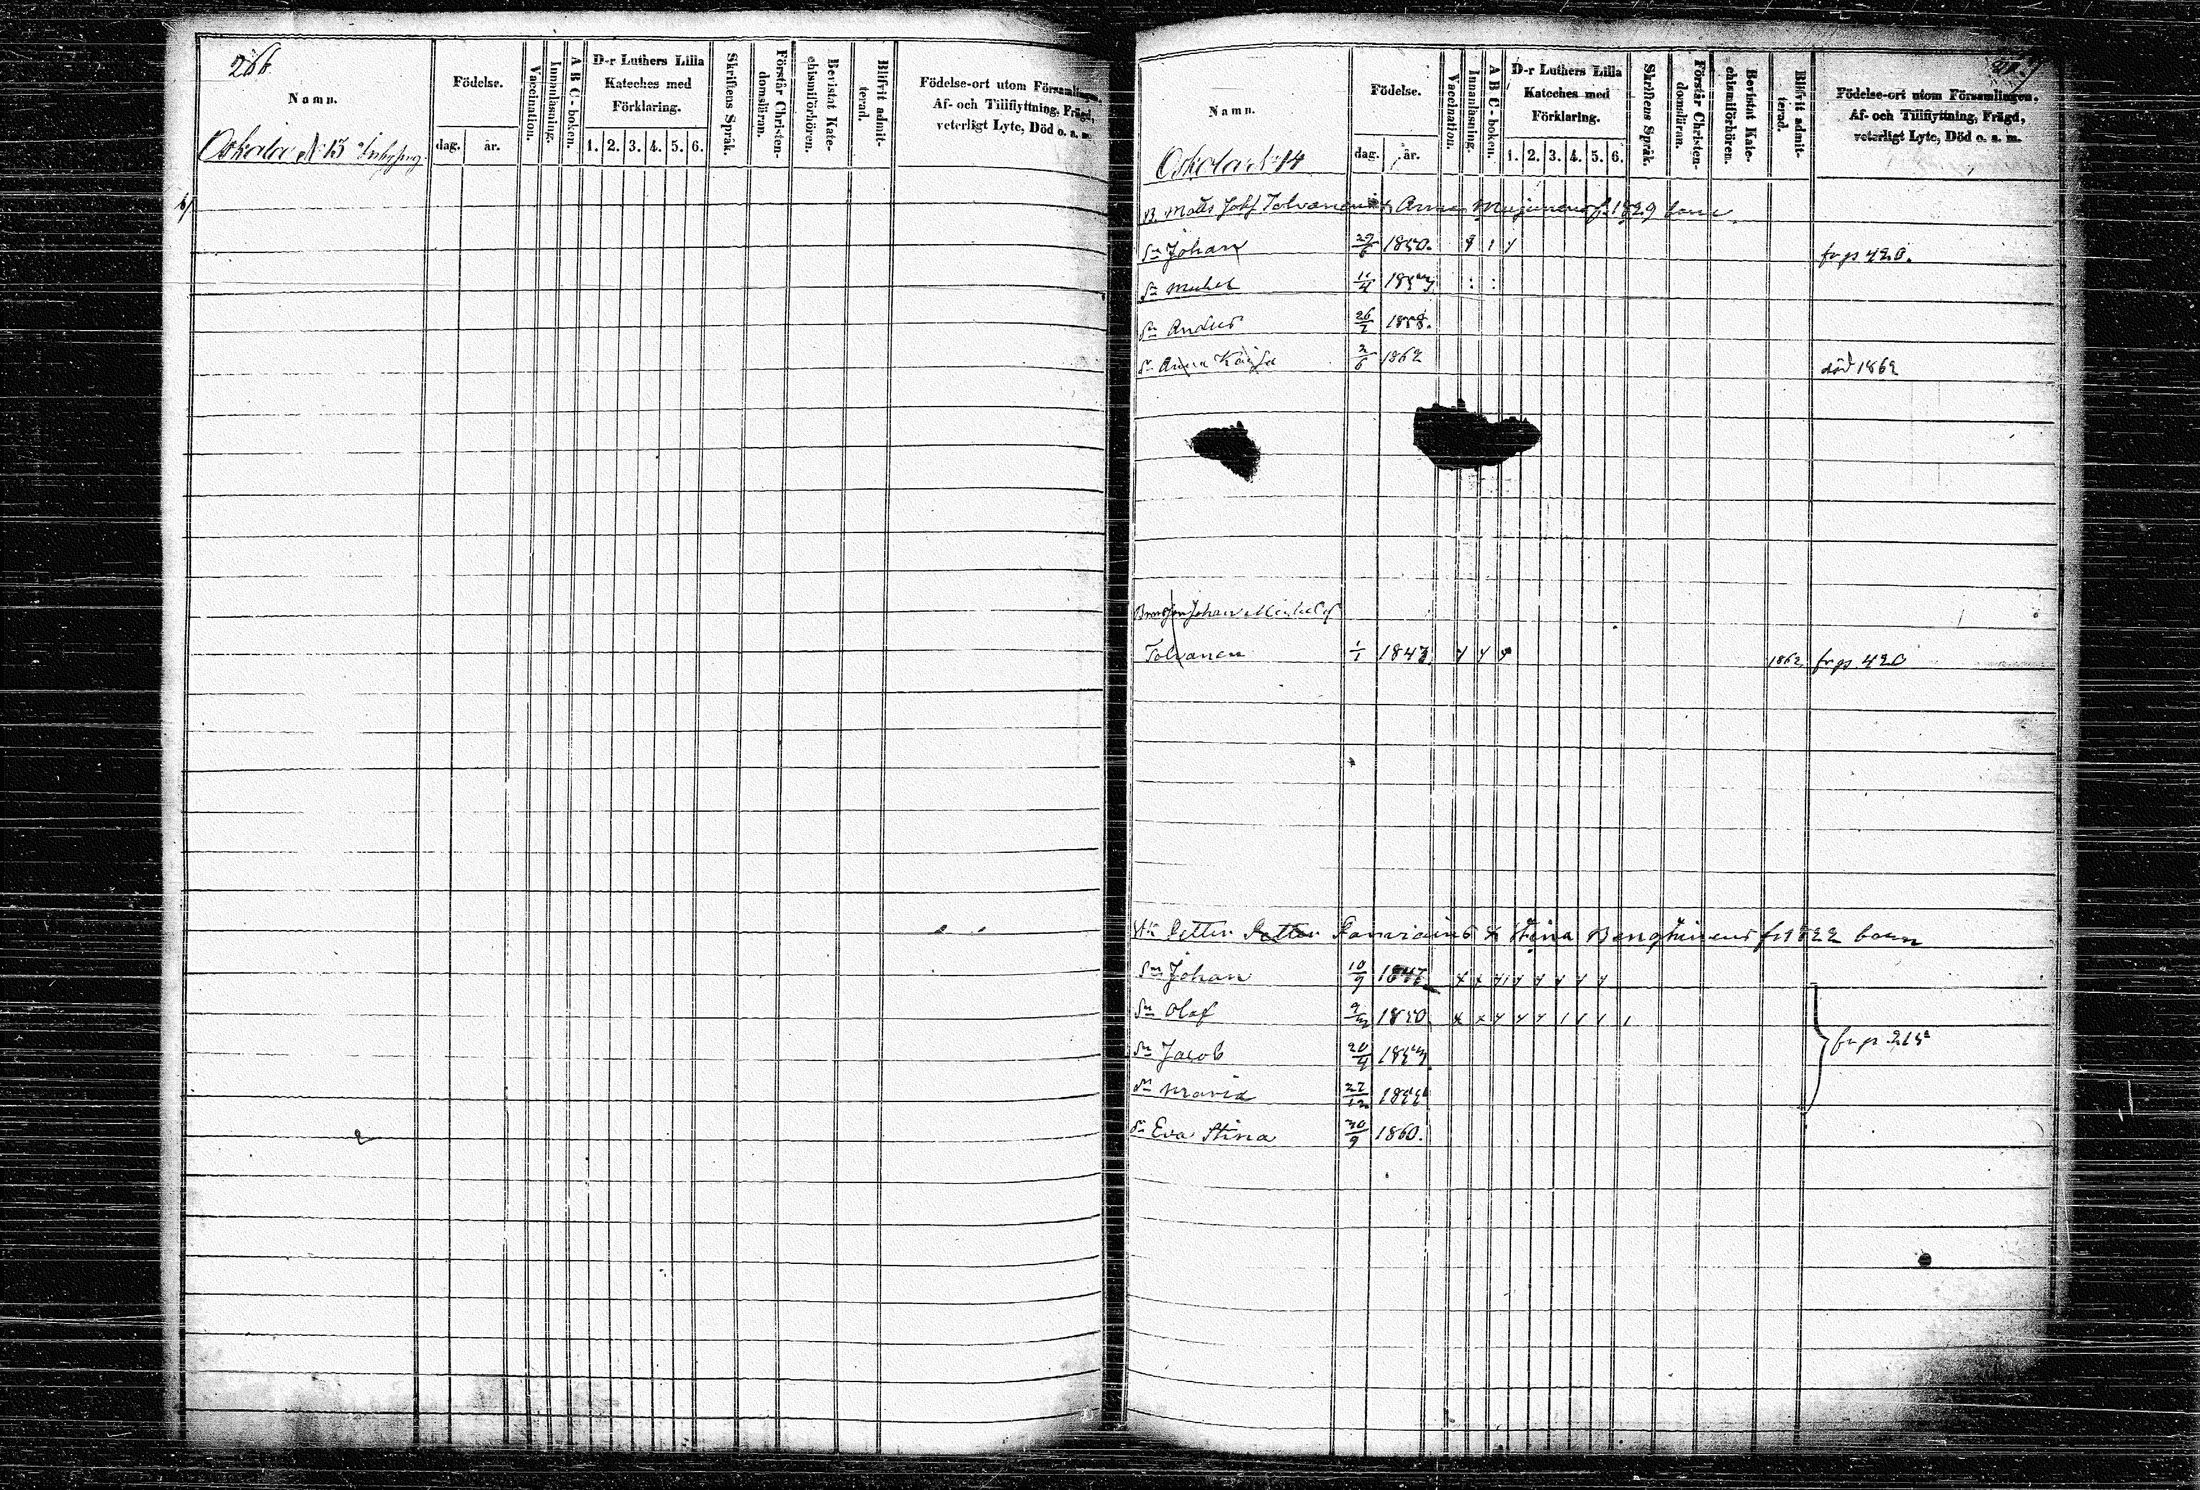 266
Namn.
Födelse.
dag. år.
Vaccination.
Innanläsning.
A B C - boken.
D-r Luthers Lilla
Kateches med
Förklaring.
1. 2. 3. 4. 5. 6.
Skriftens Språk.
Förstår Christen-
domsläran.
Bevistat Kate-
chismiförhören.
Blifvit admit-
terad.
Födelse-ort utom Församlingen.
Af- och Tillflyttning, Frägd,
veterligt Lyte, Död o. s. m.
Oskola N 13
Namn.
Födelse.
dag. år.
Vaccination.
Innanläsning.
A B C - boken.
D-r Luthers Lilla
Kateches med
Förklaring.
1. 2. 3. 4. 5. 6.
Skriftens Språk.
Förstår Christen-
domsläran.
Bevistat Kate-
chismiförhören.
Blifvit admit-
terad.
Födelse-ort utom Församlingen.
Af- och Tillflyttning, Frägd,
veterligt Lyte, Död o. s. m.
Oskola N 14
B. Mats Tolvanens & Anna f. 1829 barn
Sn Johan 1850. fr. pg 420.
Sn Michel 11/4
Sn Anders 1858.
Dr Anna Kaisa 2/6 1862 död 1862
Johan Michelsf
Tolvanen 1/1 1843 1862 fr pg 420
Petter & Stina f. 1822 barn
Sn Johan 10/9
Sn Olof 1850
Sn Jacob 20/4
Dr Maria 22/12
Dr Eva Stina 30/9 1860.